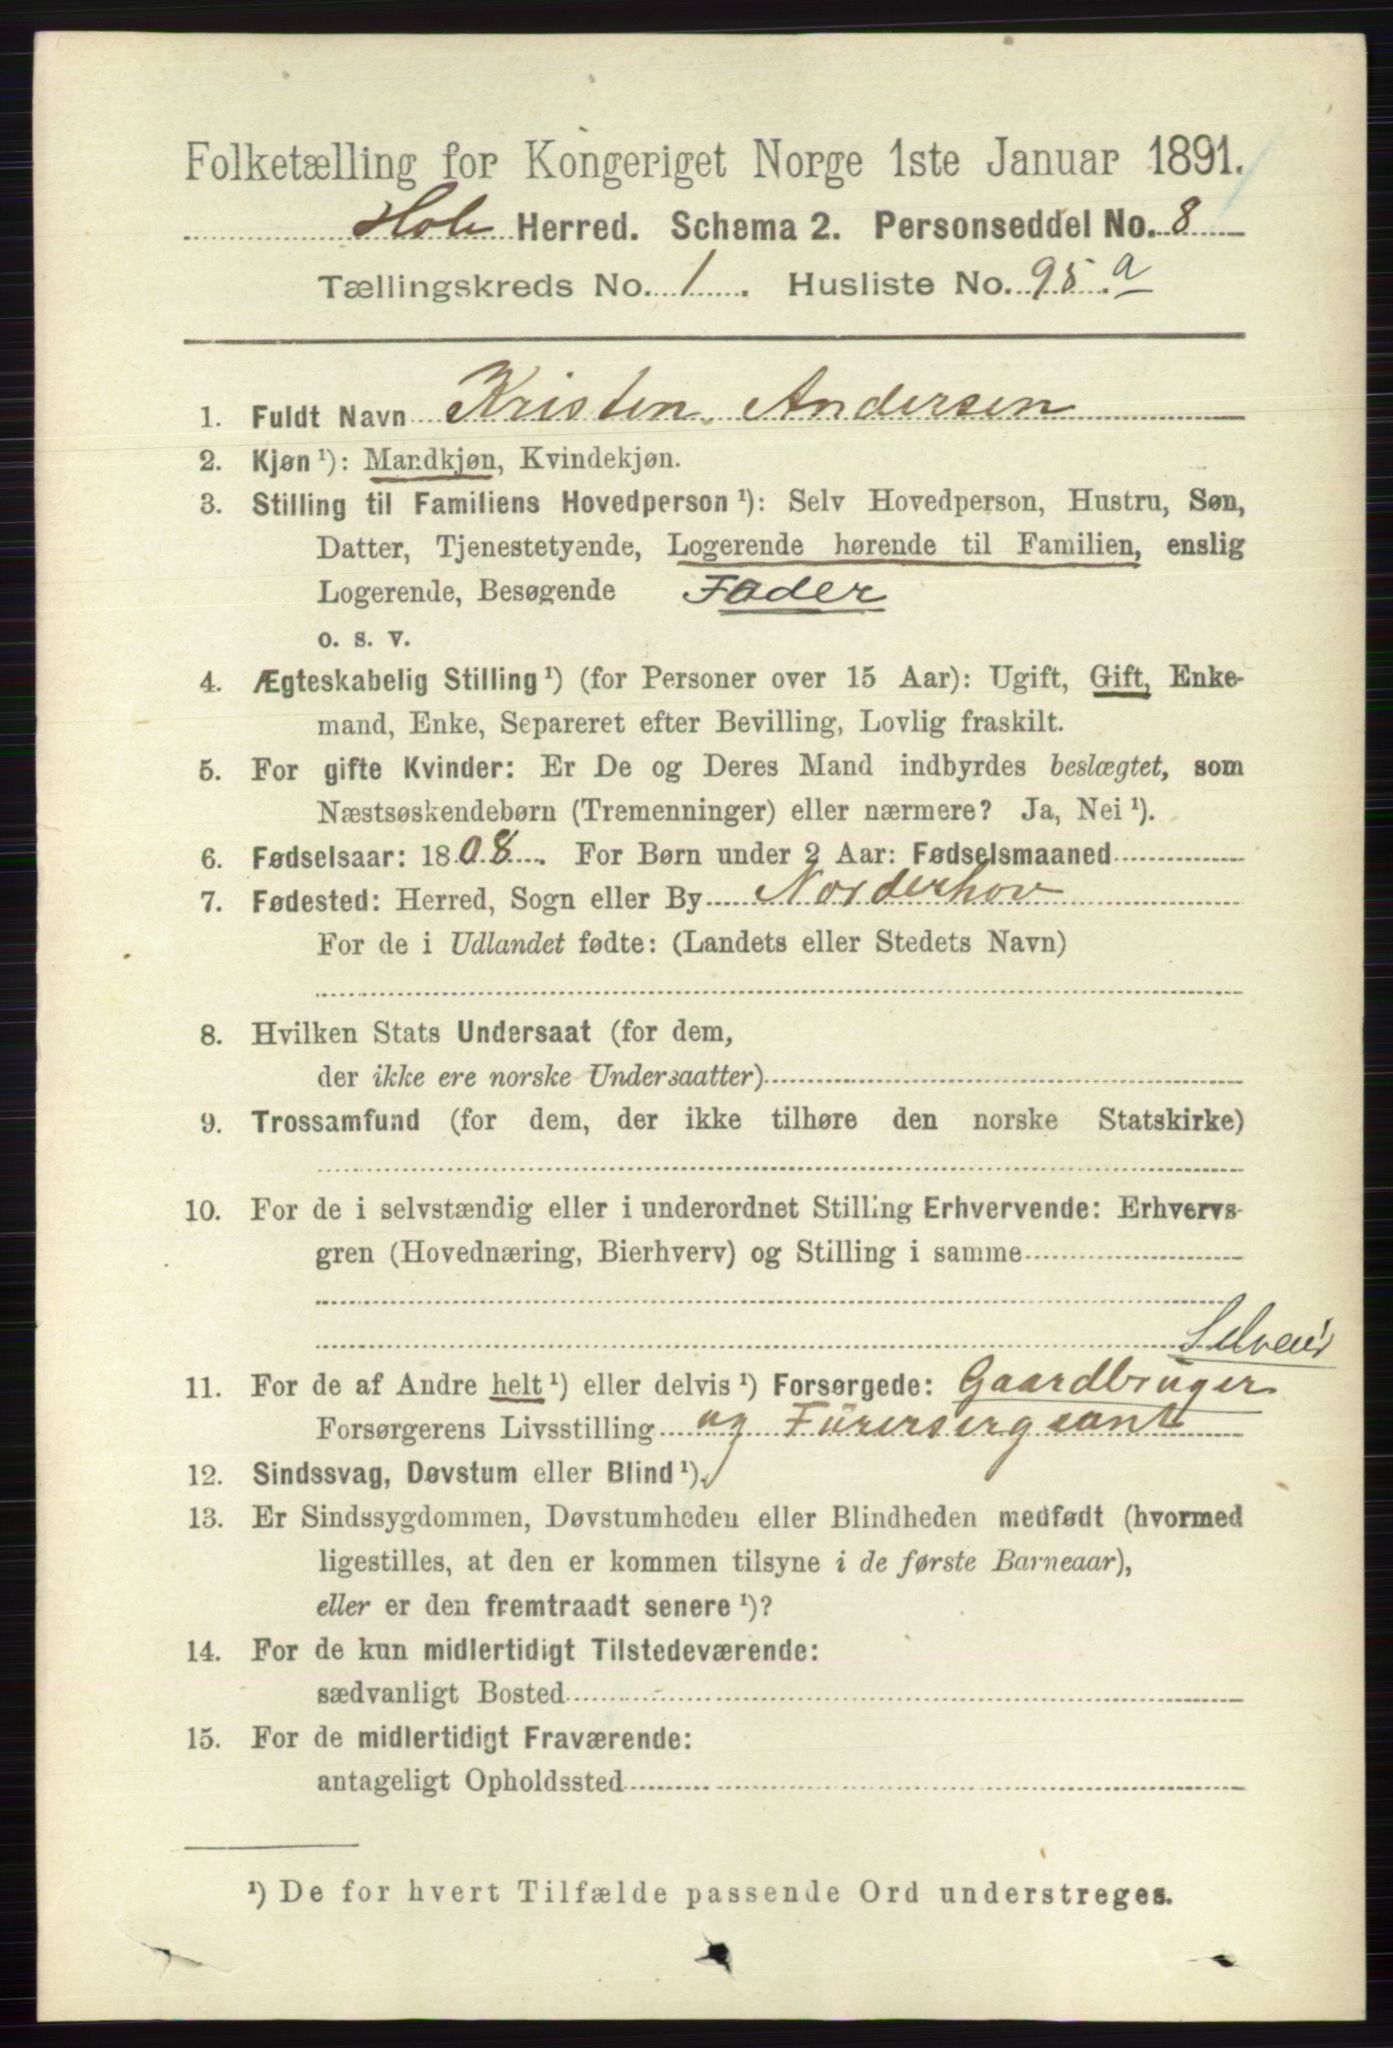 Folketælling for Kongeriget Norge 1ste Januar 1891.
Hole Herred. Schema 2. Personseddel No. 8
Tællingskreds No. 1. Husliste No. 95.a
1. Fuldt Navn Kristen Andersen
2. Kjøn ¹): Mandkjøn, Kvindekjøn.
3. Stilling til Familiens Hovedperson ¹): Selv Hovedperson, Hustru, Søn,
Datter, Tjenestetyende, Logerende hørende til Familien, enslig
Logerende, Besøgende Fader
o. s. v.
4. Ægteskabelig Stilling ¹) (for Personer over 15 Aar): Ugift, Gift, Enke-
mand, Enke, Separeret efter Bevilling, Lovlig fraskilt.
5. For gifte Kvinder: Er De og Deres Mand indbyrdes beslægtet, som
Næstsøskendebørn (Tremenninger) eller nærmere? Ja, Nei ¹).
6. Fødselsaar: 1808. For Børn under 2 Aar: Fødselsmaaned
7. Fødested: Herred, Sogn eller By Norderhov
For de i Udlandet fødte: (Landets eller Stedets Navn)
8. Hvilken Stats Undersaat (for dem,
der ikke ere norske Undersaatter)
9. Trossamfund (for dem, der ikke tilhøre den norske Statskirke)
10. For de i selvstændig eller i underordnet Stilling Erhvervende: Erhvervs-
gren (Hovednæring, Bierhverv) og Stilling i samme
Selveier
11. For de af Andre helt ¹) eller delvis ¹) Forsørgede: Gaardbruger
Forsørgerens Livsstilling og Furersergeant
12. Sindssvag, Døvstum eller Blind ¹).
13. Er Sindssygdommen, Døvstumheden eller Blindheden medfødt (hvormed
ligestilles, at den er kommen tilsyne i de første Barneaar),
eller er den fremtraadt senere ¹)?
14. For de kun midlertidigt Tilstedeværende:
sædvanligt Bosted
15. For de midlertidigt Fraværende:
antageligt Opholdssted
¹) De for hvert Tilfælde passende Ord understreges.